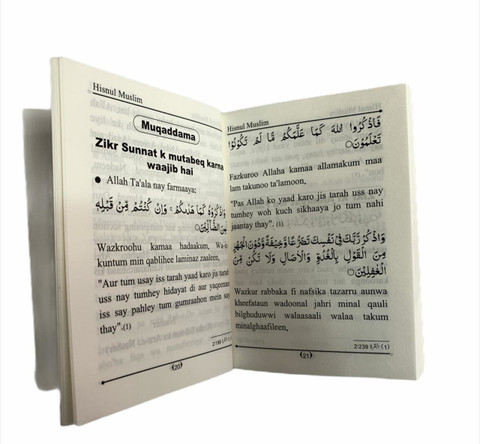 Hisnul Muslim
Muqaddama
Zikr Sunnat k mutabeq karna
waajib hai
Allah Ta'ala nay farmaaya:
وَاذْكُرُوهُ كَمَا هَدٰىكُمْ وَاِنْ كُنْتُمْ مِّنْ قَبْلِهٖ
لَمِنَ الضَّآلِّيْنَ
Wazkroohu kamaa hadaakum, Wa-i
kuntum min qablihee laminaz zaaleen,
"Aur tum usay iss tarah yaad karo jis tarah
uss nay tumhey hidayat di aur yaqeenan
iss say pahley tum gumraahon mein say
thay".(1)
(1) 2:198
(20)
Hisnul Muslim
فَاذْكُرُوا اللّٰهَ كَمَا عَلَّمَكُمْ مَّا لَمْ تَكُوْنُوْا
تَعْلَمُوْنَ
Fazkuroo Allaha kamaa allamakum maa
lam takunoo ta'lamoon,
"Pas Allah ko yaad karo jis tarah uss nay
tumhey woh kuch sikhaaya jo tum nahi
jaantay thay". (1)
وَاذْكُرْ رَّبَّكَ فِيْ نَفْسِكَ تَضَرُّعًا وَّخِيْفَةً وَّدُوْنَ الْجَهْرِ
مِنَ الْقَوْلِ بِالْغُدُوِّ وَالْاٰصَالِ وَلَا تَكُنْ مِّنَ
الْغٰفِلِيْنَ
Wazkur rabbaka fi nafsika tazarru aunwa
kheefataun wadoonal jahri minal qauli
bilghuduwwi walaasaali walaa takum
minalghaafileen,
(1) 2:239
(21)